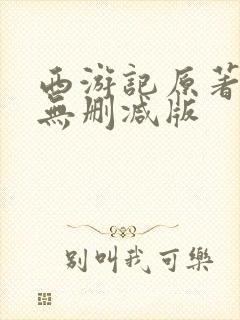 西游記原著
無刪減版
别叫我可樂